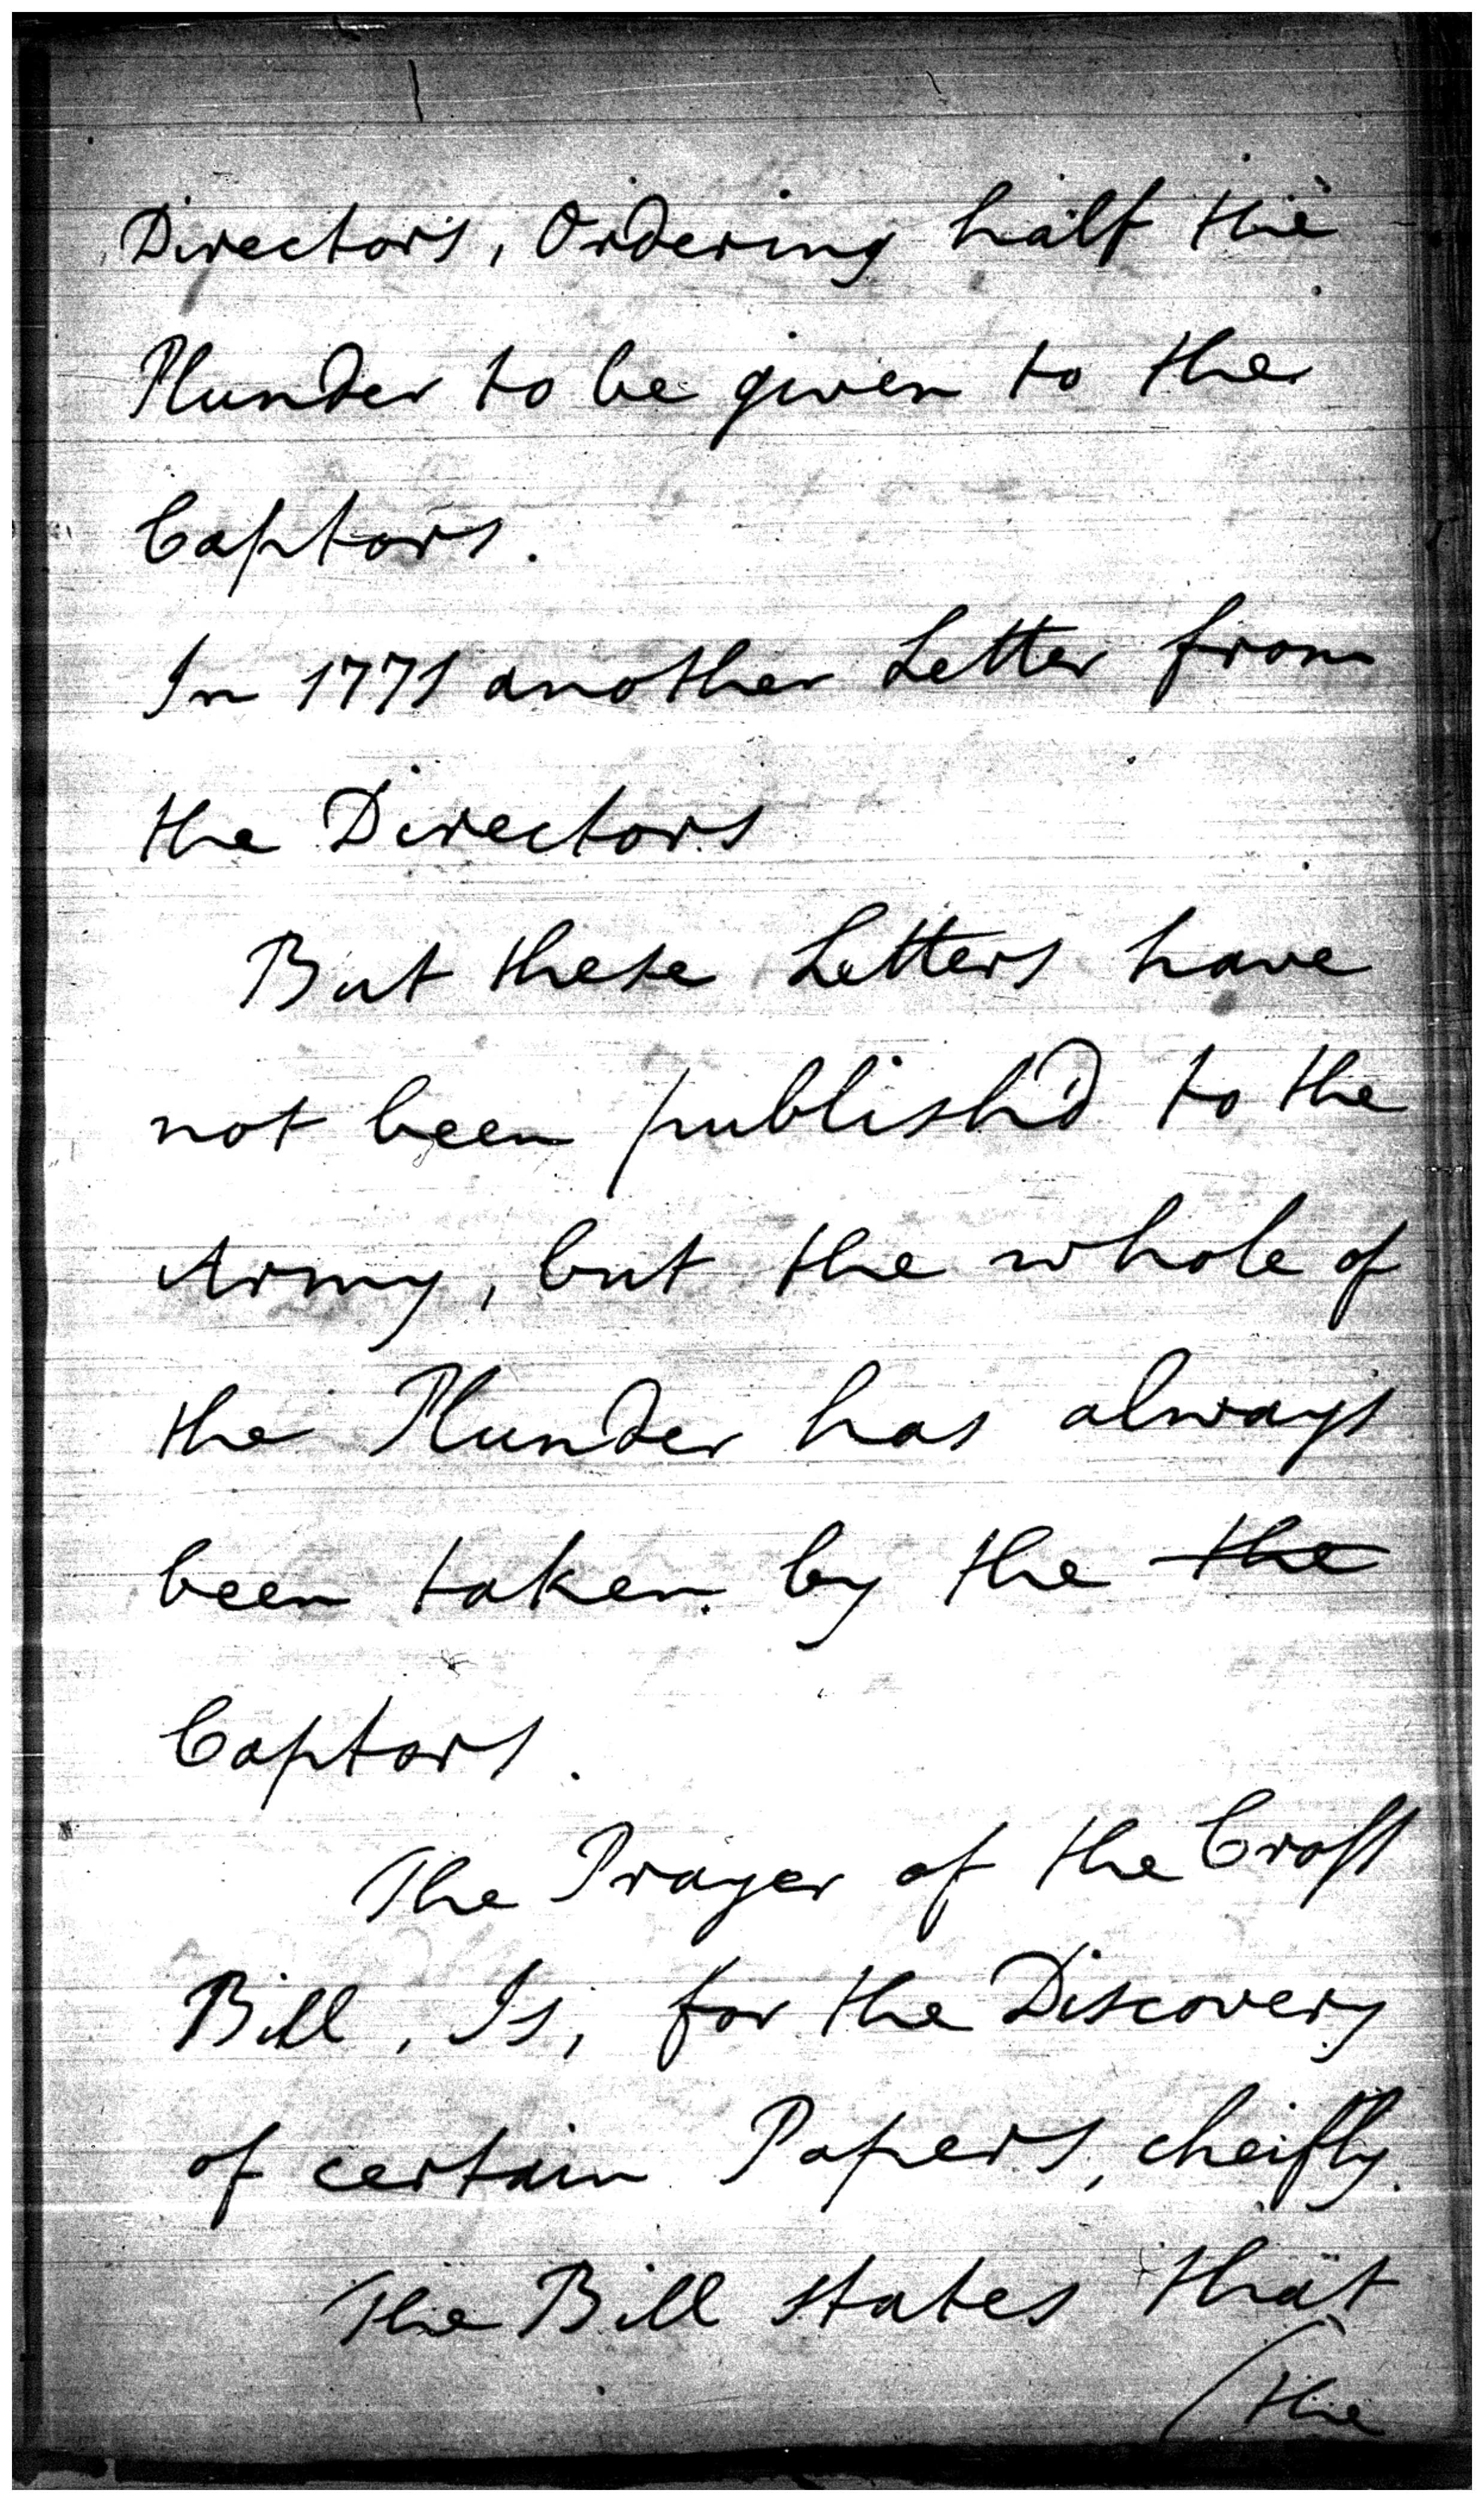 Directors, Ordering half the
Plunder to be given to the
Captors.
In 1771 another Letter from
the Directors
But these Letters have
not been publish'd to the
Army, but the whole of
the Plunder has always
been taken by the the
Captors.
The Prayer of the Cross
Bill, Is, for the Discovery
of certain Papers, cheifly.
The Bill states that
(the